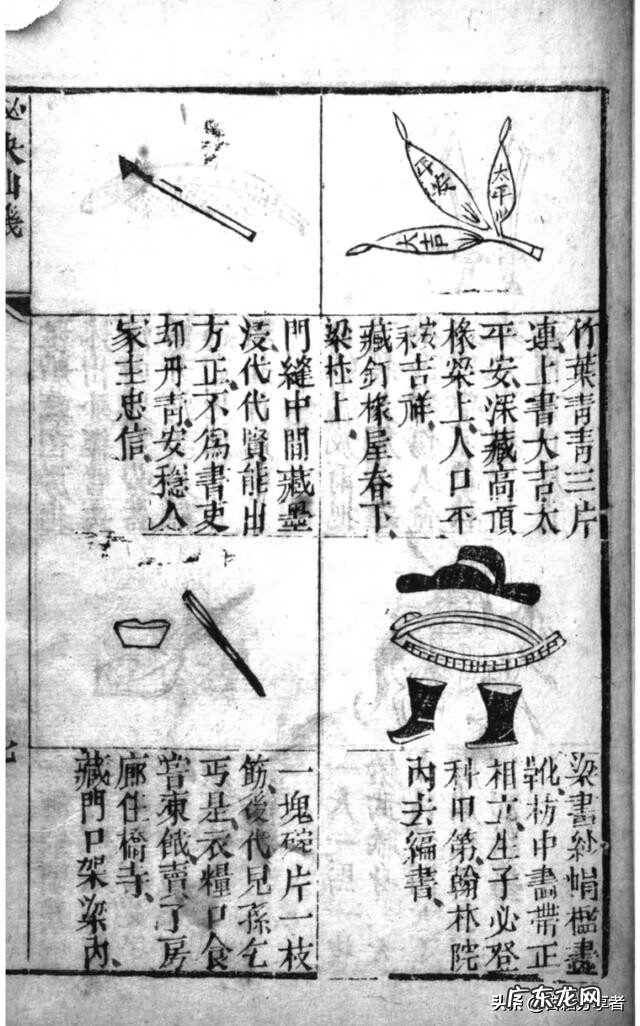 太平
平安
大吉
竹葉青青三片
連上書大吉太
平安深藏高頂
椽梁上人口不
安吉祥
藏釘椽屋春下
梁柱上
門縫中間藏墨
浸代代賢能出
方正不爲書吏
却丹青安穩人
家主忠信
梁畫紗帽檻畫
靴枋中畫帶正
相立生子必登
科甲第翰林院
內去編書
一塊碗片一枝
筯後代兒孫乞
丐是衣糧口食
嘗凍餓賣了房
廊住橋寺
藏門口架梁內
广东龙网